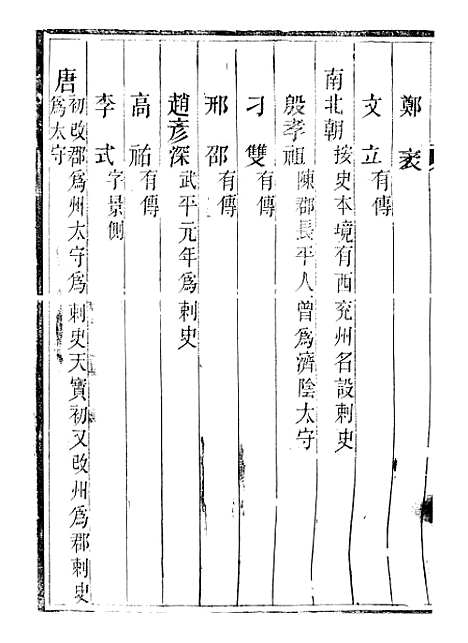 鄭袤
文立有傳
南北朝按史本境有西兖州名設刺史
殷孝祖陳郡長平人曾爲濟陰太守
刁雙有傳
邢邵有傳
趙彦深武平元年爲刺史
高祐有傳
李式字景側
唐初改郡爲州太守爲刺史天寶初又改州爲郡刺史
爲太守